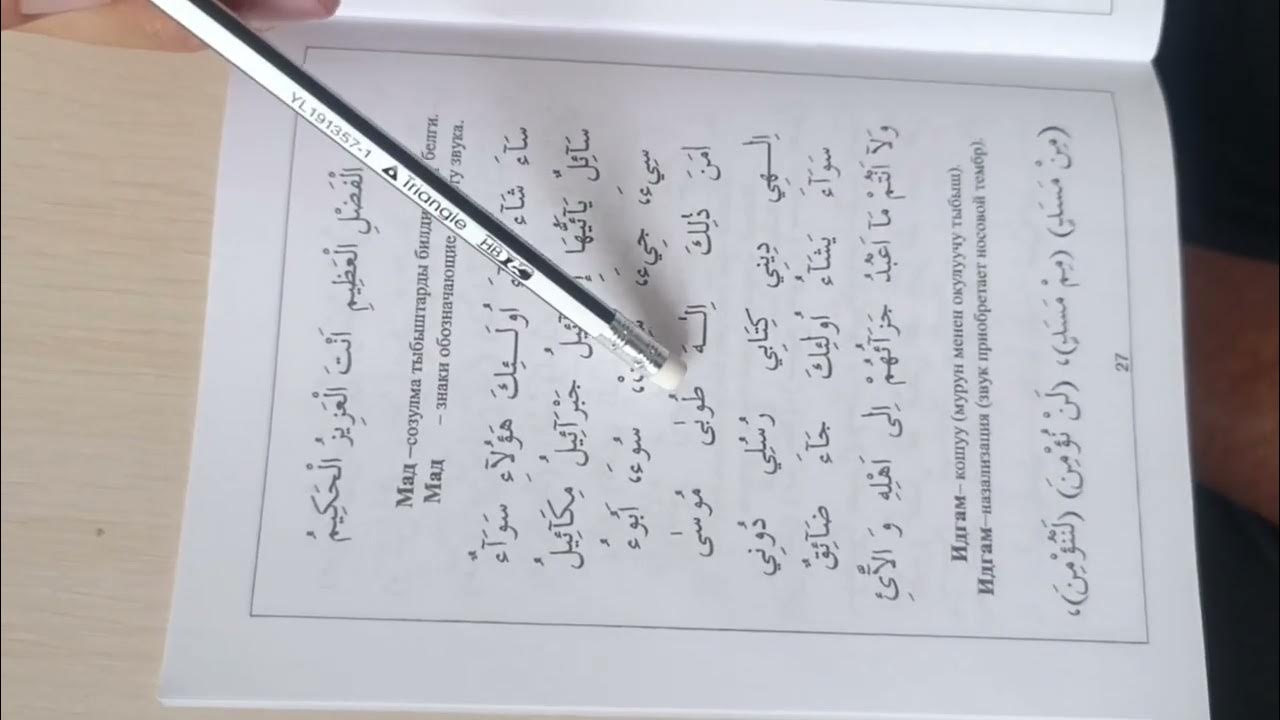 الْفَضْلِ الْعَظِيمِ اَنْتَ الْعَزِيزُ الْحَكِيمُ
Мад –созулма тыбыштарды билди белги.
Мад – знаки обозначающие ту звука.
سَآءَ شَآءَ اُولَـئِكَ هَؤُلَآءِ سَوَآءٌ
سَآئِلٌ يَآاَيُّهَا جَبْرَآئِيلُ مِكَآئِيلُ
سِيءَ، جِيءَ، سُوءَ، اَبُوءُ
اٰمَنَ ذٰلِكَ اِلٰـهَ طُوبٰى مُوسٰى
اِلٰـهِي دِينِي كِتَابِي رُسُلِي دُونِي
سَوَآءَ يَشَآءُ اُولٰئِكَ جَآءَ ضَآئِقٌ
وَلَآ اَنْتُمْ مَآ اَعْبُدُ جَزَآئُهُمْ اِلٰى اَهْلِهِ وَ الْاۤئِ
Идгам– кошуу (мурун менен окулуучу тыбыш).
Идгам–назализация (звук приобретает носовой тембр).
(مِنْ مَسَدٍ) (مِمْ مَسَدٍ)، (لَنْ نُؤْمِنَ) (لَنُّؤْمِنَ)،
27
YL191357-1 Triangle HB